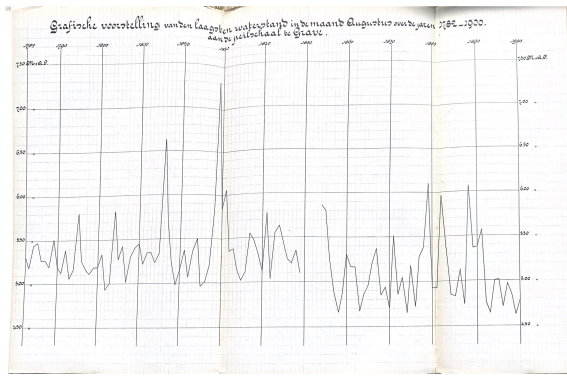 Grafische voorstelling van den laagsten waterstand in de maand Augustus over de jaren 1782_1900.
aan de peilschaal te Grave.
1782 1790 1800 1810 1820 1830 1840 1850 1860 1870 1880 1890 1900
7,50 M+A.P. 7,50 M+A.P.
7,00 " 7,00 "
6,50 " 6,50 "
6,00 " 6,00 "
5,50 " 5,50 "
5,00 " 5,00 "
4,50 " 4,50 "